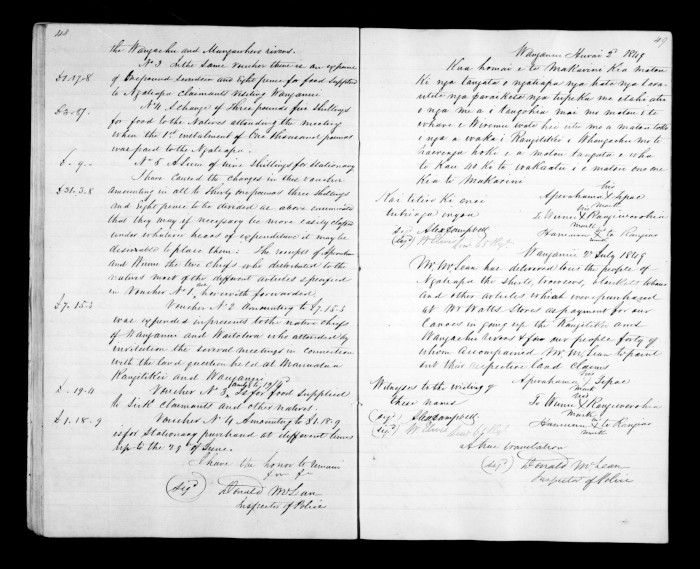 48
the Wangaehu and Mungawhero rivers.
N. 3 In the same Voucher there is an expense
£1.17.8 of One pound seventeen and Eight pence for food Supplied
to Ngatiapa claimants visiting Wanganui
£3.5/. N. 4 A charge of three pounds five Shillings
for food to the Natives attending the meeting
when the 1st instalment of One thousand pounds
was paid to the Ngatiapa.
£ - 9 - N. 5 A Sum of nine Shillings for Stationary
I have caused the charges in this voucher
£31.3.8 amounting in all to thirty one pounds three shillings
and Eight pence to be divided as above enumerated
that they may if necessary be more easily classed
under whatever heads of expenditure it may be
desirable to place them; The receipt of Aperahama
and Winu the two chiefs who distributed to the
natives most of the different articles specified
in Voucher No 1, herewith forwarded.
£7.15.3 Voucher N. 2 Amounting to £7.15.3
was expended in presents to the native chiefs
of Wanganui and Waitotara who attended by
invitation the several meetings in connection
with the land question held at Manawatu
Rangitikei and Wanganui
£ - 19.4 Voucher N. 3, is for food Supplied
to Sick claimants and other natives.
£1.18.9 Voucher N. 4 Amounting to £1.18.9
is for Stationary purchased at different times
up to the 29th of June.
I have the honor to remain
(Sigd) Donald McLean
Inspector of Police
49
Wanganui Hurai 2d 1849
Kua homai e te Makarini kia matou
ki nga tangata o Ngatiapa nga hate nga tara
utete nga paraikete nga tupeka me etahi atu
o nga me a i tangohia mai me matou i te
whare o
o nga waka i Rangitikei i Whangaehu me te
haerenga hoki o a matou tangata e wha
te kau 40 ki te wakaatu i o matou
kia te Makarini
his
Aperahama X Tipae
mark
Kai titiro ki enei
tuhinga ingoa
his
Te Winu X Rangiwerohia
mark
Sigd Alex Campbell
(Sigd) W Lewis
Hamuera X te Rangiao
mark
Wanganui 2d July 1849
Mr. McLean has delivered to us the people of
Ngatiapa the shirts, trowsers, blankets tobacco
and other articles which were purchased
at Mr Watts Stores as payment for our
Canoes in going up the Rangitikei and
Wangaehu rivers & for our people forty of
whom accompanied Mr. McLean to point
out their respective land claims
his
Aperahama X Tipae
mark
Witnesses to the writing of
these names
his
Te Winu X Rangiwerohia
mark
(Sigd) Alex Campbell
(Sigd) W Lewis
Hamuera X te Rangiao
mark
A true translation
(Sigd) Donald McLean
Inspector of Police